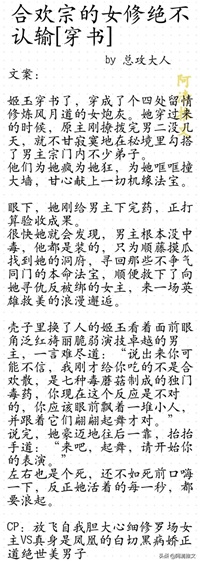 合欢宗的女修绝不
认输[穿书]
by 总攻大人
文案:
姬玉穿书了，穿成了个四处留情
修炼风月道的女炮灰。她穿过来
的时候，原主刚撩拨完男二没几
天，就不甘寂寞地在秘境里勾搭
了男主宗门内不少弟子。
他们为她疯为她狂，为她哐哐撞
大墙，甘心献上一切机缘法宝。
眼下，她刚给男主下完药，正打
算验收成果。
很快她就会发现，男主根本没中
毒，他都是装的，只为顺藤摸瓜
找到她的洞府，寻回那些不争气
同门的本命法宝，顺便救下了向
她寻仇反被绑的女主，来一场英
雄救美的浪漫邂逅。
壳子里换了人的姬玉看着面前眼
角泛红绮丽脆弱演技卓越的男
主，一言难尽道：“说出来你可
能不信，我刚才给你吃的不是合
欢散，是七种毒蘑菇制成的独门
毒药，你现在这个反应是不对
的，你应该眼前飘着一堆小人，
并跟着它们翩翩起舞才对。”
说完，她豪迈地往后一靠，抬抬
手道：“来吧，起舞，请开始你
的表演。”
左右也是个死，还不如死前口嗨
一下，反正她活着的每一秒，都
要浪起。
CP：放飞自我胆大心细修罗场女
主VS真身是凤凰的白切黑病娇正
道绝世美男子